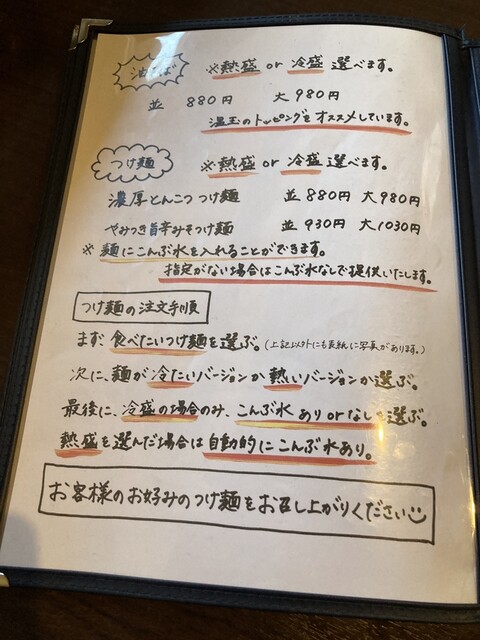 油そば ※熱盛 or 冷盛 選べます。
並 880円 大 980円
温玉のトッピングもオススメしています。
つけ麺 ※熱盛 or 冷盛 選べます。
濃厚とんこつつけ麺 並 880円 大 980円
やみつき旨辛みそつけ麺 並 930円 大 1030円
※ 麺にこんぶ水を入れることができます。
指定がない場合はこんぶ水なしで提供いたします。
つけ麺の注文手順
まず 食べたいつけ麺を選ぶ。(上記以外にも表紙に写真があります。)
次に、麺が冷たいバージョンか熱いバージョンか選ぶ。
最後に、冷盛の場合のみ、こんぶ水 あり or なしを選ぶ。
熱盛を選んだ場合は自動的にこんぶ水あり。
お客様のお好みのつけ麺をお召し上がりください